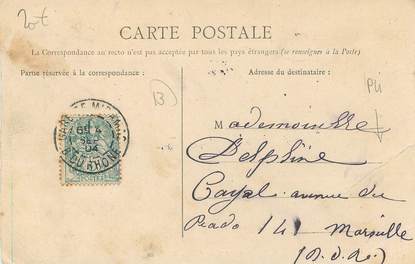 CARTE POSTALE
La Correspondance au recto n'est pas acceptée par tous les pays étrangers (se renseigner à la Poste)
Partie réservée à la correspondance :
Adresse du destinataire :
13
Mademoiselle
Delphine
Cayal avenue du
Prado 141 Marseille
(B.d.R.)